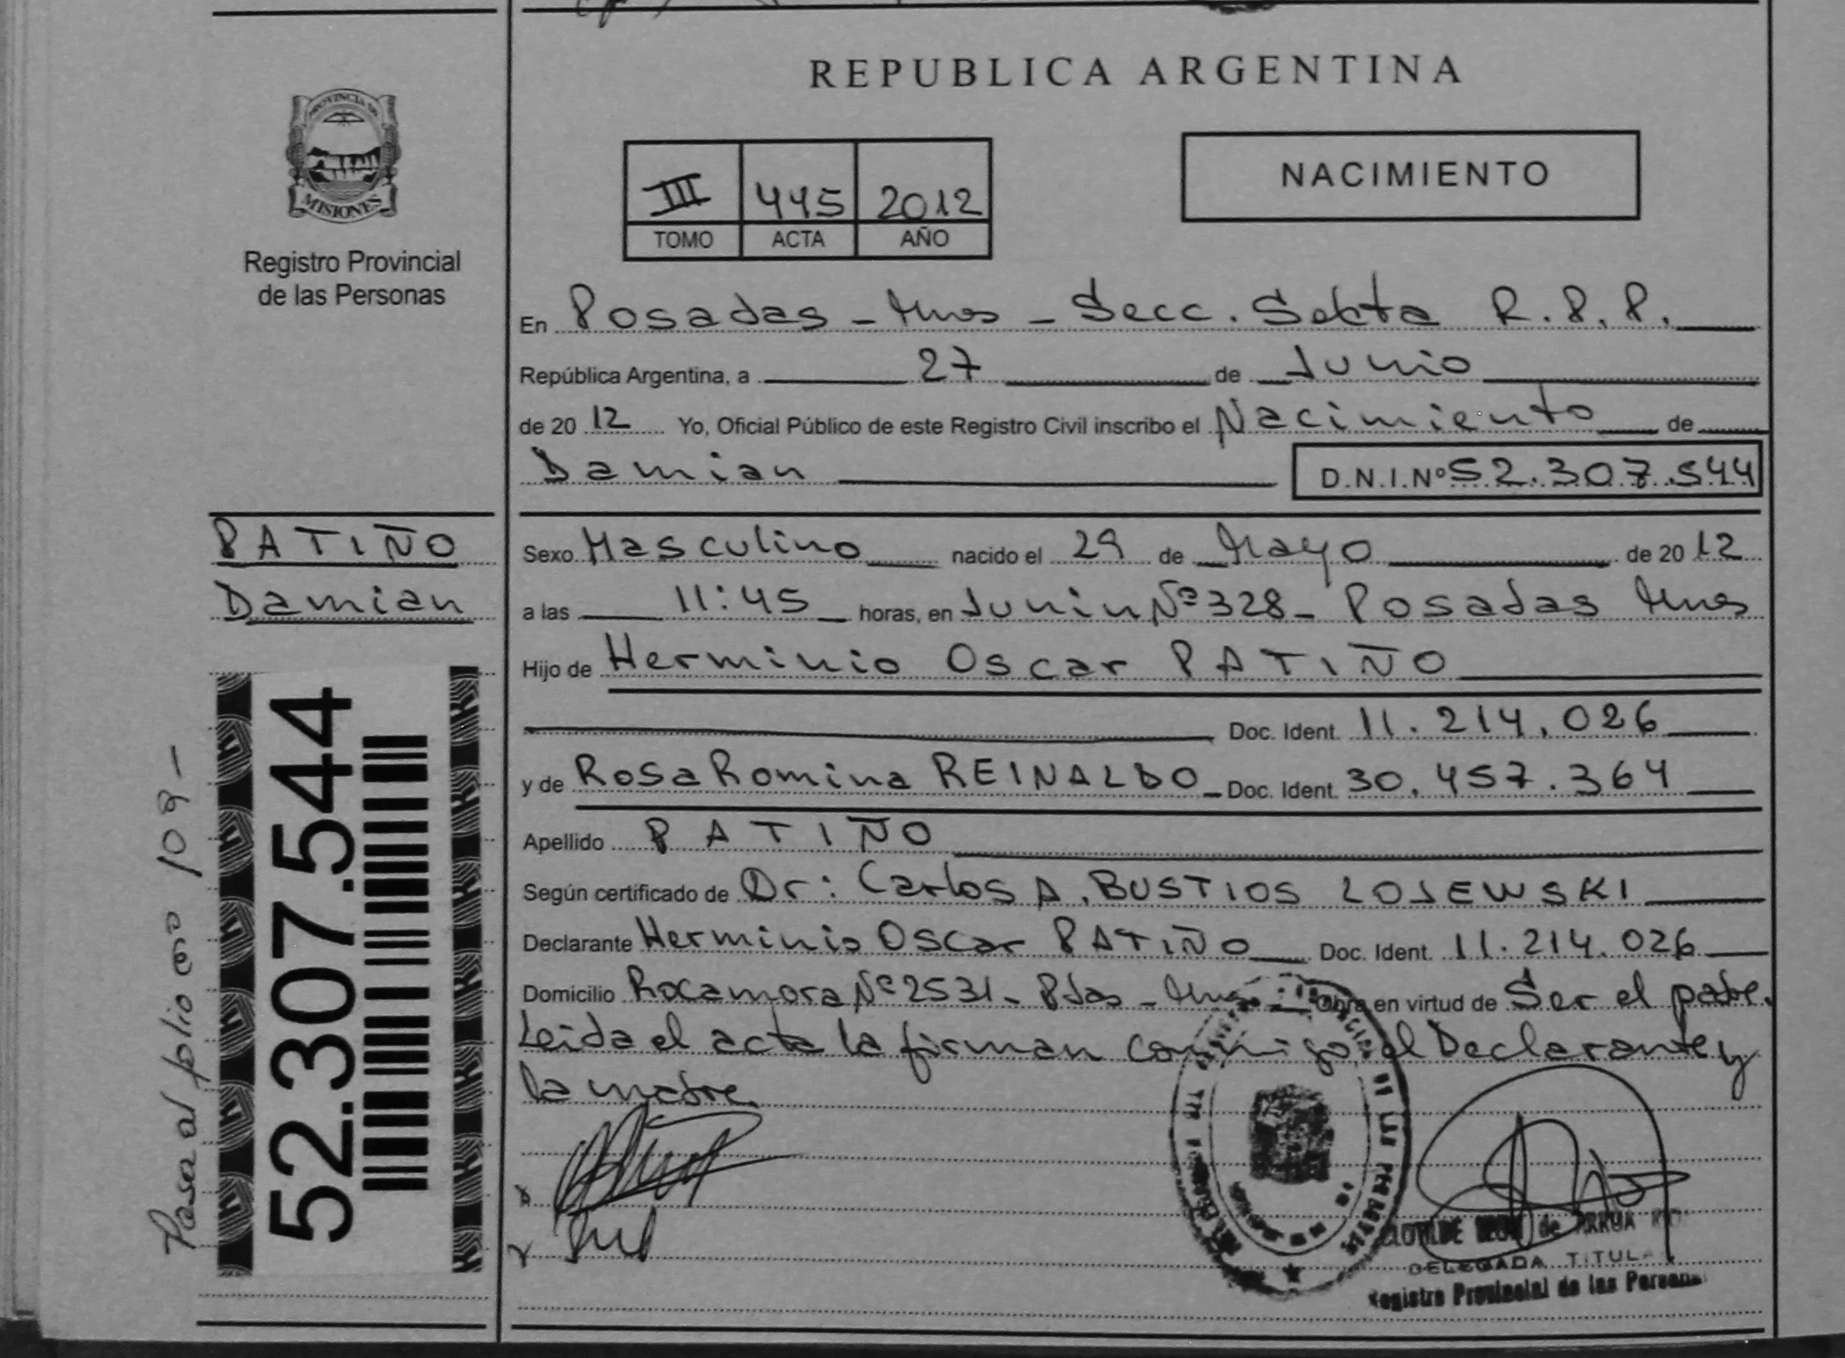 REPUBLICA ARGENTINA
PROVINCIA DE
MISIONES
Registro Provincial
de las Personas
III 445 2012
TOMO ACTA AÑO
NACIMIENTO
En Posadas - Mnes - Secc. Sexta R.P.P.
República Argentina, a 27 de Junio
de 2012 Yo, Oficial Público de este Registro Civil inscribo el Nacimiento de
Damian D.N.I.Nº 52.307.544
PATIÑO
Damian
Sexo Masculino nacido el 29 de Mayo de 2012
a las 11:45 horas, en Junin Nº 328 - Posadas Mnes
Hijo de Herminio Oscar PATIÑO
Doc. Ident. 11.214.026
y de Rosa Romina REINALDO Doc. Ident. 30.457.364
Apellido PATIÑO
Según certificado de Dr: Carlos A. BUSTIOS LOJEWSKI
Declarante Herminio Oscar PATIÑO Doc. Ident. 11.214.026
Domicilio Rocamora Nº 2531 - Pdas - Mnes Obra en virtud de Ser el padre.
Leida el acta la firman conmigo, el Declarante y
la madre.
52.307.544
Pasa al folio 109 -
CLOTILDE de
DELEGADA TITULAR
Registro Provincial de las Personas